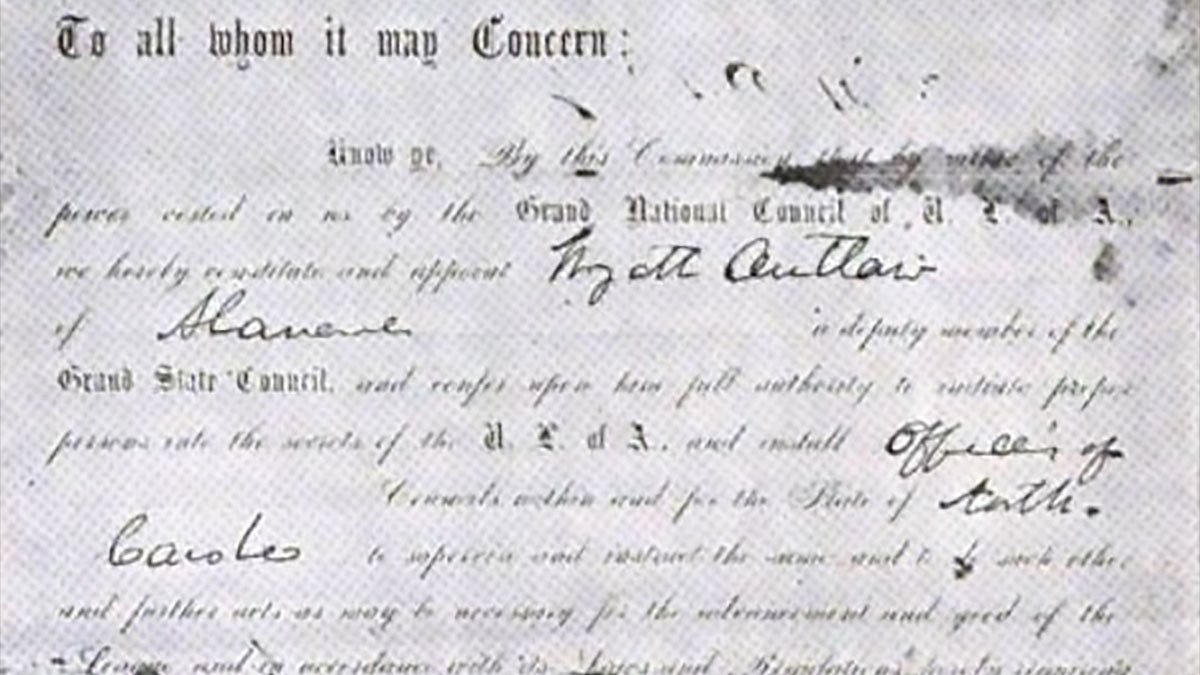 To all whom it may Concern:
Know ye, By this Commission, that by virtue of the
power vested in us by the Grand National Council of U. L. of A.,
we hereby constitute and appoint Wyatt Outlaw
of Alamance a deputy member of the
Grand State Council, and confer upon him full authority to initiate proper
persons into the secrets of the U. L. of A., and install Officers of
Councils within and for the State of North
Carolina to supervise and instruct the same and to do such other
and further acts as may be necessary for the advancement and good of the
League and in accordance with its Laws and Regulations